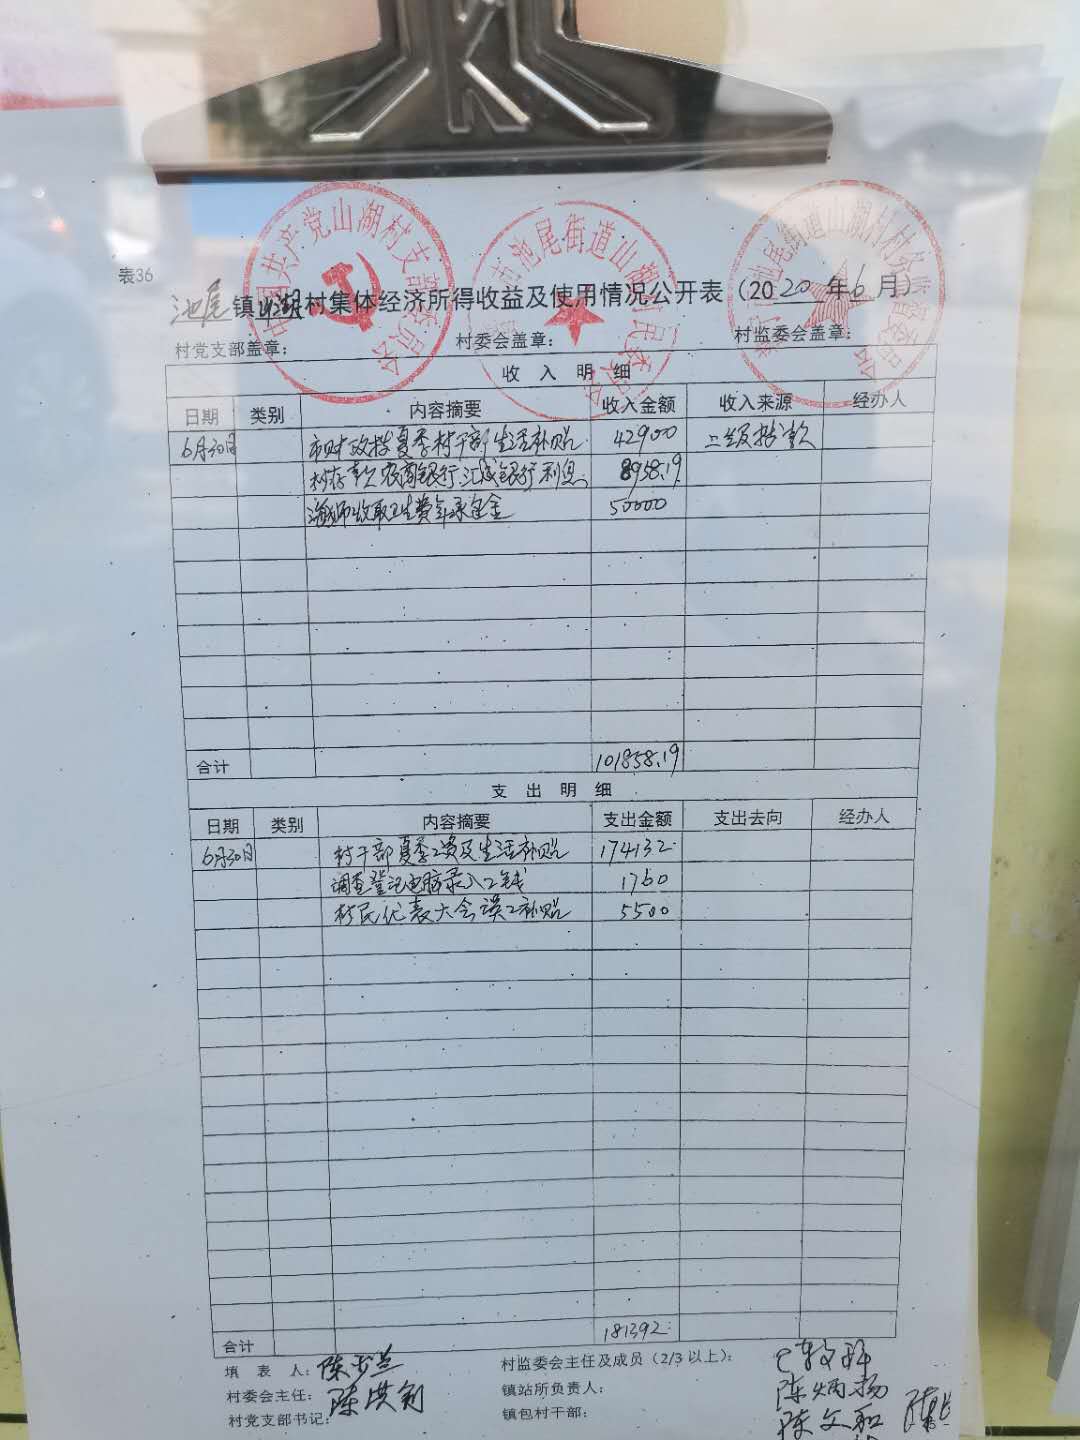 中国共产党山湖村支部委员会
市池尾街道山湖村民委员会
池尾街道山湖村村务监督委员会
表36
池尾镇山湖村集体经济所得收益及使用情况公开表（2020年6月）
村党支部盖章： 村委会盖章： 村监委会盖章：
收 入 明 细
日期 类别 内容摘要 收入金额 收入来源 经办人
6月30日 市财政拨夏季村干部生活补贴 42900 上级拨款
村存款农商银行、汇成银行利息 8958.19
收取卫生费年承金 50000
合计 101858.19
支 出 明 细
日期 类别 内容摘要 支出金额 支出去向 经办人
6月30日 村干部夏季工资及生活补贴 174132
调查登记电脑录入工钱 1760
村民代表大会误工补贴 5500
合计 181392
填 表 人： 村监委会主任及成员（2/3以上）：
村委会主任： 镇站所负责人： 陈炳扬
村党支部书记： 镇包村干部： 陈文和